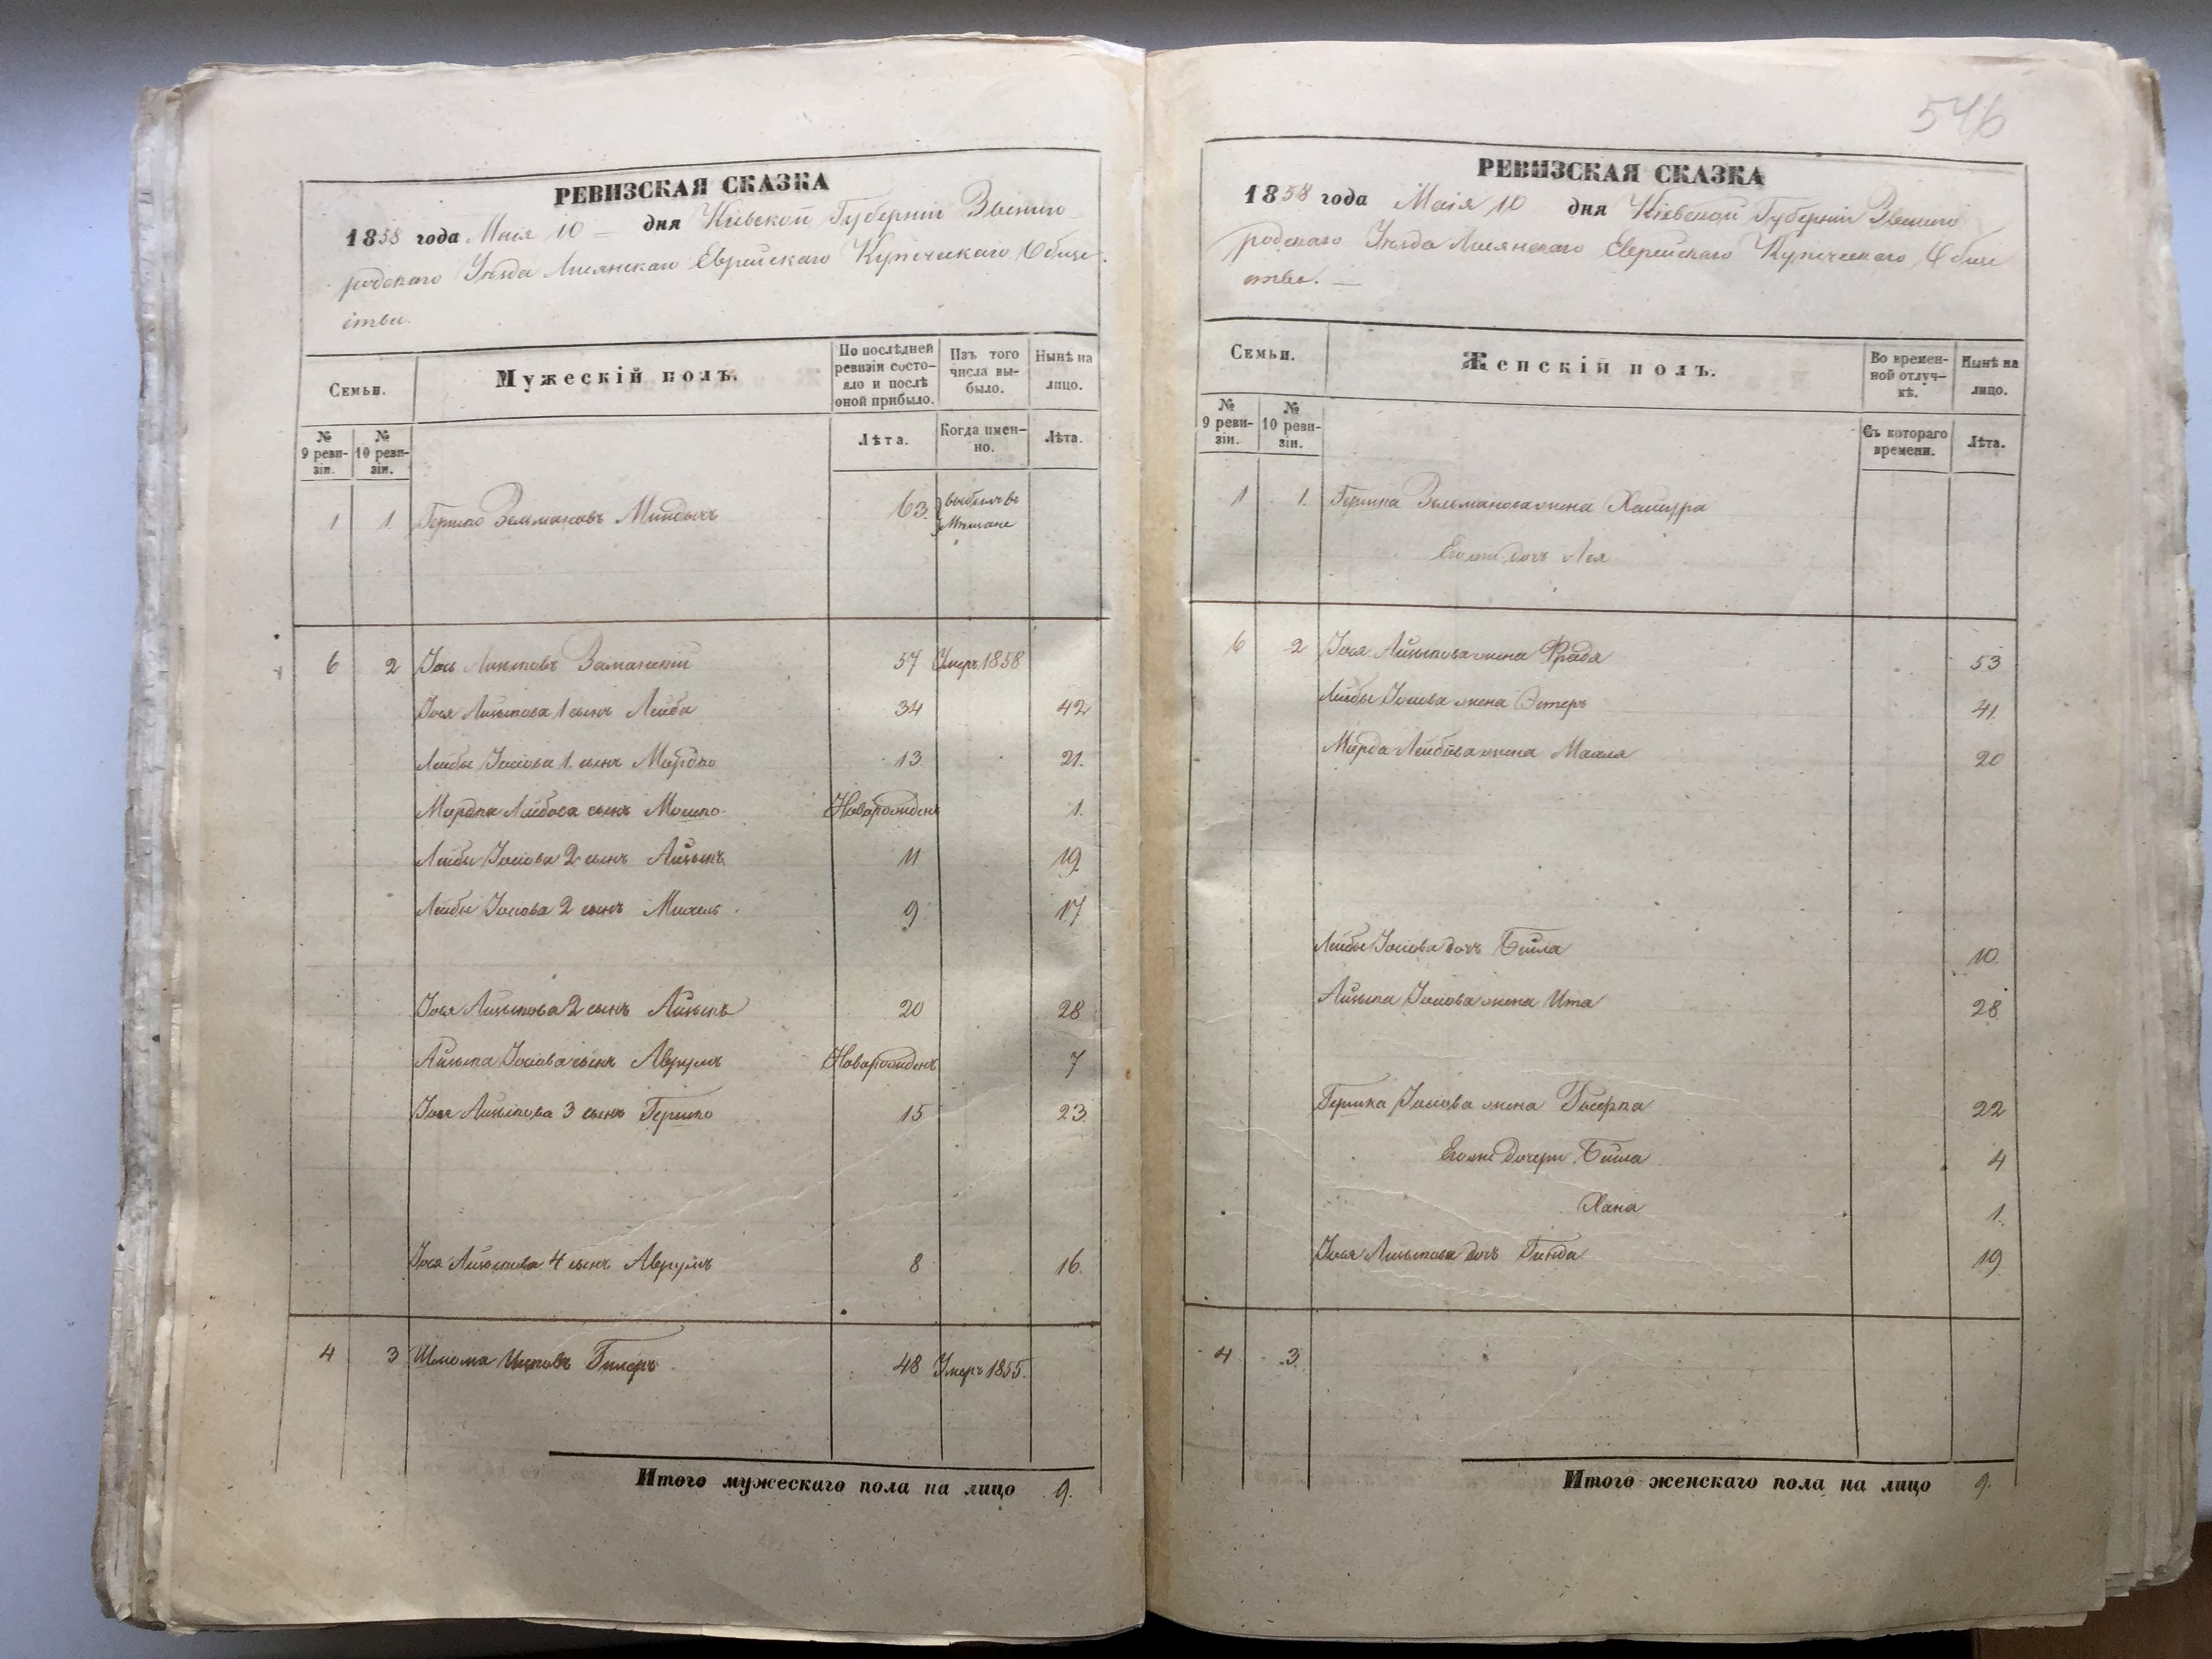 РЕВИЗСКАЯ СКАЗКА
1858 года Маія 10 дня Кіевской Губерніи Звениго
родскаго Уѣзда Лисянскаго Еврейскаго Купеческаго Обще
ства.
Семьи.
Мужескій полъ.
По послѣдней ревизіи состояло и послѣ оной прибыло.
Изъ того числа выбыло.
Нынѣ на лицо.
№ 9 ревизіи.
№ 10 ревизіи.
Лѣта.
Когда именно.
Лѣта.
1 1. Гершко Зельмановъ 63. выбылъ въ
Мѣщане
6 2 Іось Айзыковъ Заманскій 57 Умеръ 1858
Іося Айзыкова 1 сынъ Лейба 34 42
Лейбы Іосіова 1. сынъ Мордко 13 21.
Мордка Лейбова сынъ Мошко 1.
Лейбы Іосіова 2 сынъ Айзыкъ 11 19.
Лейбы Іосіова 2 сынъ Михель 9 17
Іося Айзыкова 2 сынъ Айзыкъ 20 28
Айзыка Іосіова сынъ Аврумъ 7
Іося Айзыкова 3 сынъ Гершко 15 23.
Іося Айзыкова 4 сынъ Аврумъ 8 16.
4 3 Шлiома 48 Умеръ 1855.
Итого мужескаго пола на лицо 9.
546
РЕВИЗСКАЯ СКАЗКА
1858 года Маія 10 дня Кіевской Губерніи Звениго
родскаго Уѣзда Лисянскаго Еврейскаго Купеческаго Обще
ства.
Семьи.
Женскій полъ.
Во временной отлучкѣ.
Нынѣ на лицо.
№ 9 ревизіи.
№ 10 ревизіи.
Съ котораго времени.
Лѣта.
1 1. Гершка Зельманова жена
Его же дочь Лея
6 2 Іося Айзыкова жена Фрада 53
Лейбы Іосіова жена Эстеръ 41.
Мордка Лейбова жена 20
Лейбы Іосіова дочь Бейла 10.
Айзыка Іосіова жена Ита 28
Гершка Іосіова жена 22
Его же дочери Бейла 4
Хана 1.
Іося Айзыкова дочь Гинда 19
4 3.
Итого женскаго пола на лицо 9.